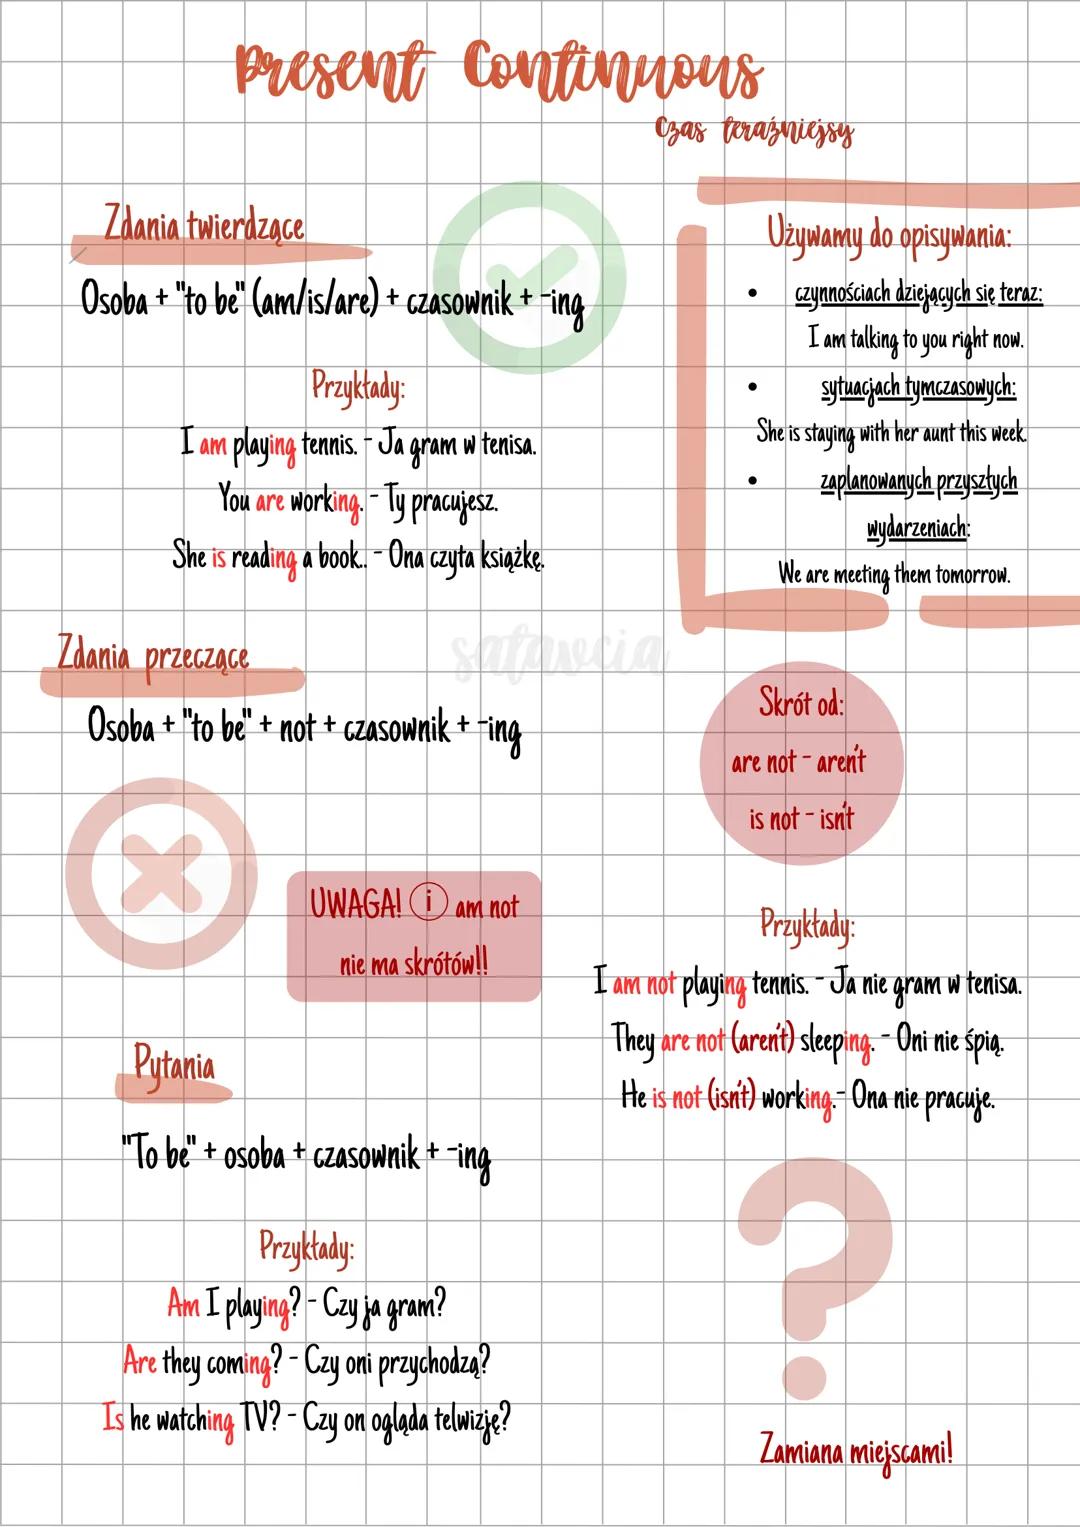 Present Continuous
Czas teraźniejsy
Zdania twierdzące
Osoba + "to be" (am/is/are) + czasownik + -ing
Przykłady:
I am playing tennis. - Ja gram w tenisa.
You are working. - Ty pracujesz.
She is reading a book.. - Ona czyta książkę.
Używamy do opisywania:
• czynnościach dziejących się teraz:
I am talking to you right now.
• sytuacjach tymczasowych:
She is staying with her aunt this week.
• zaplanowanych przyszłych
wydarzeniach:
We are meeting them tomorrow.
satavcia
Zdania przeczące
Osoba + "to be" + not + czasownik + -ing
Skrót od:
are not - aren't
is not - isn't
UWAGA! i am not
nie ma skrótów!!
Przykłady:
I am not playing tennis. - Ja nie gram w tenisa.
They are not (aren't) sleeping. - Oni nie śpią.
He is not (isn't) working.- Ona nie pracuje.
Pytania
"To be" + osoba + czasownik + -ing
Przykłady:
Am I playing? - Czy ja gram?
Are they coming? - Czy oni przychodzą?
Is he watching TV? - Czy on ogląda telwizję?
Zamiana miejscami!